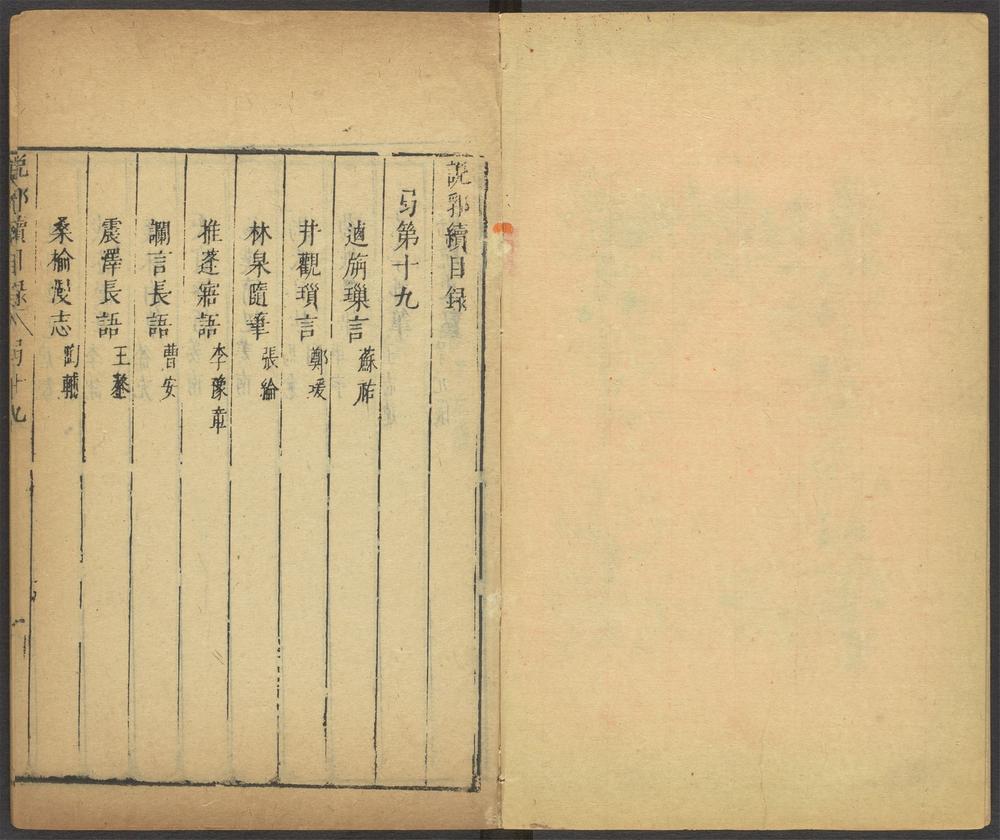 說郛續目録
弓第十九
逌旃璅言 蘇祐
井觀瑣言 鄭瑗
林泉隨筆 張綸
推蓬寤語 李豫亨
讕言長語 曹安
震澤長語 王鏊
桑榆漫志 陶輔
說郛續目録 弓十九
一